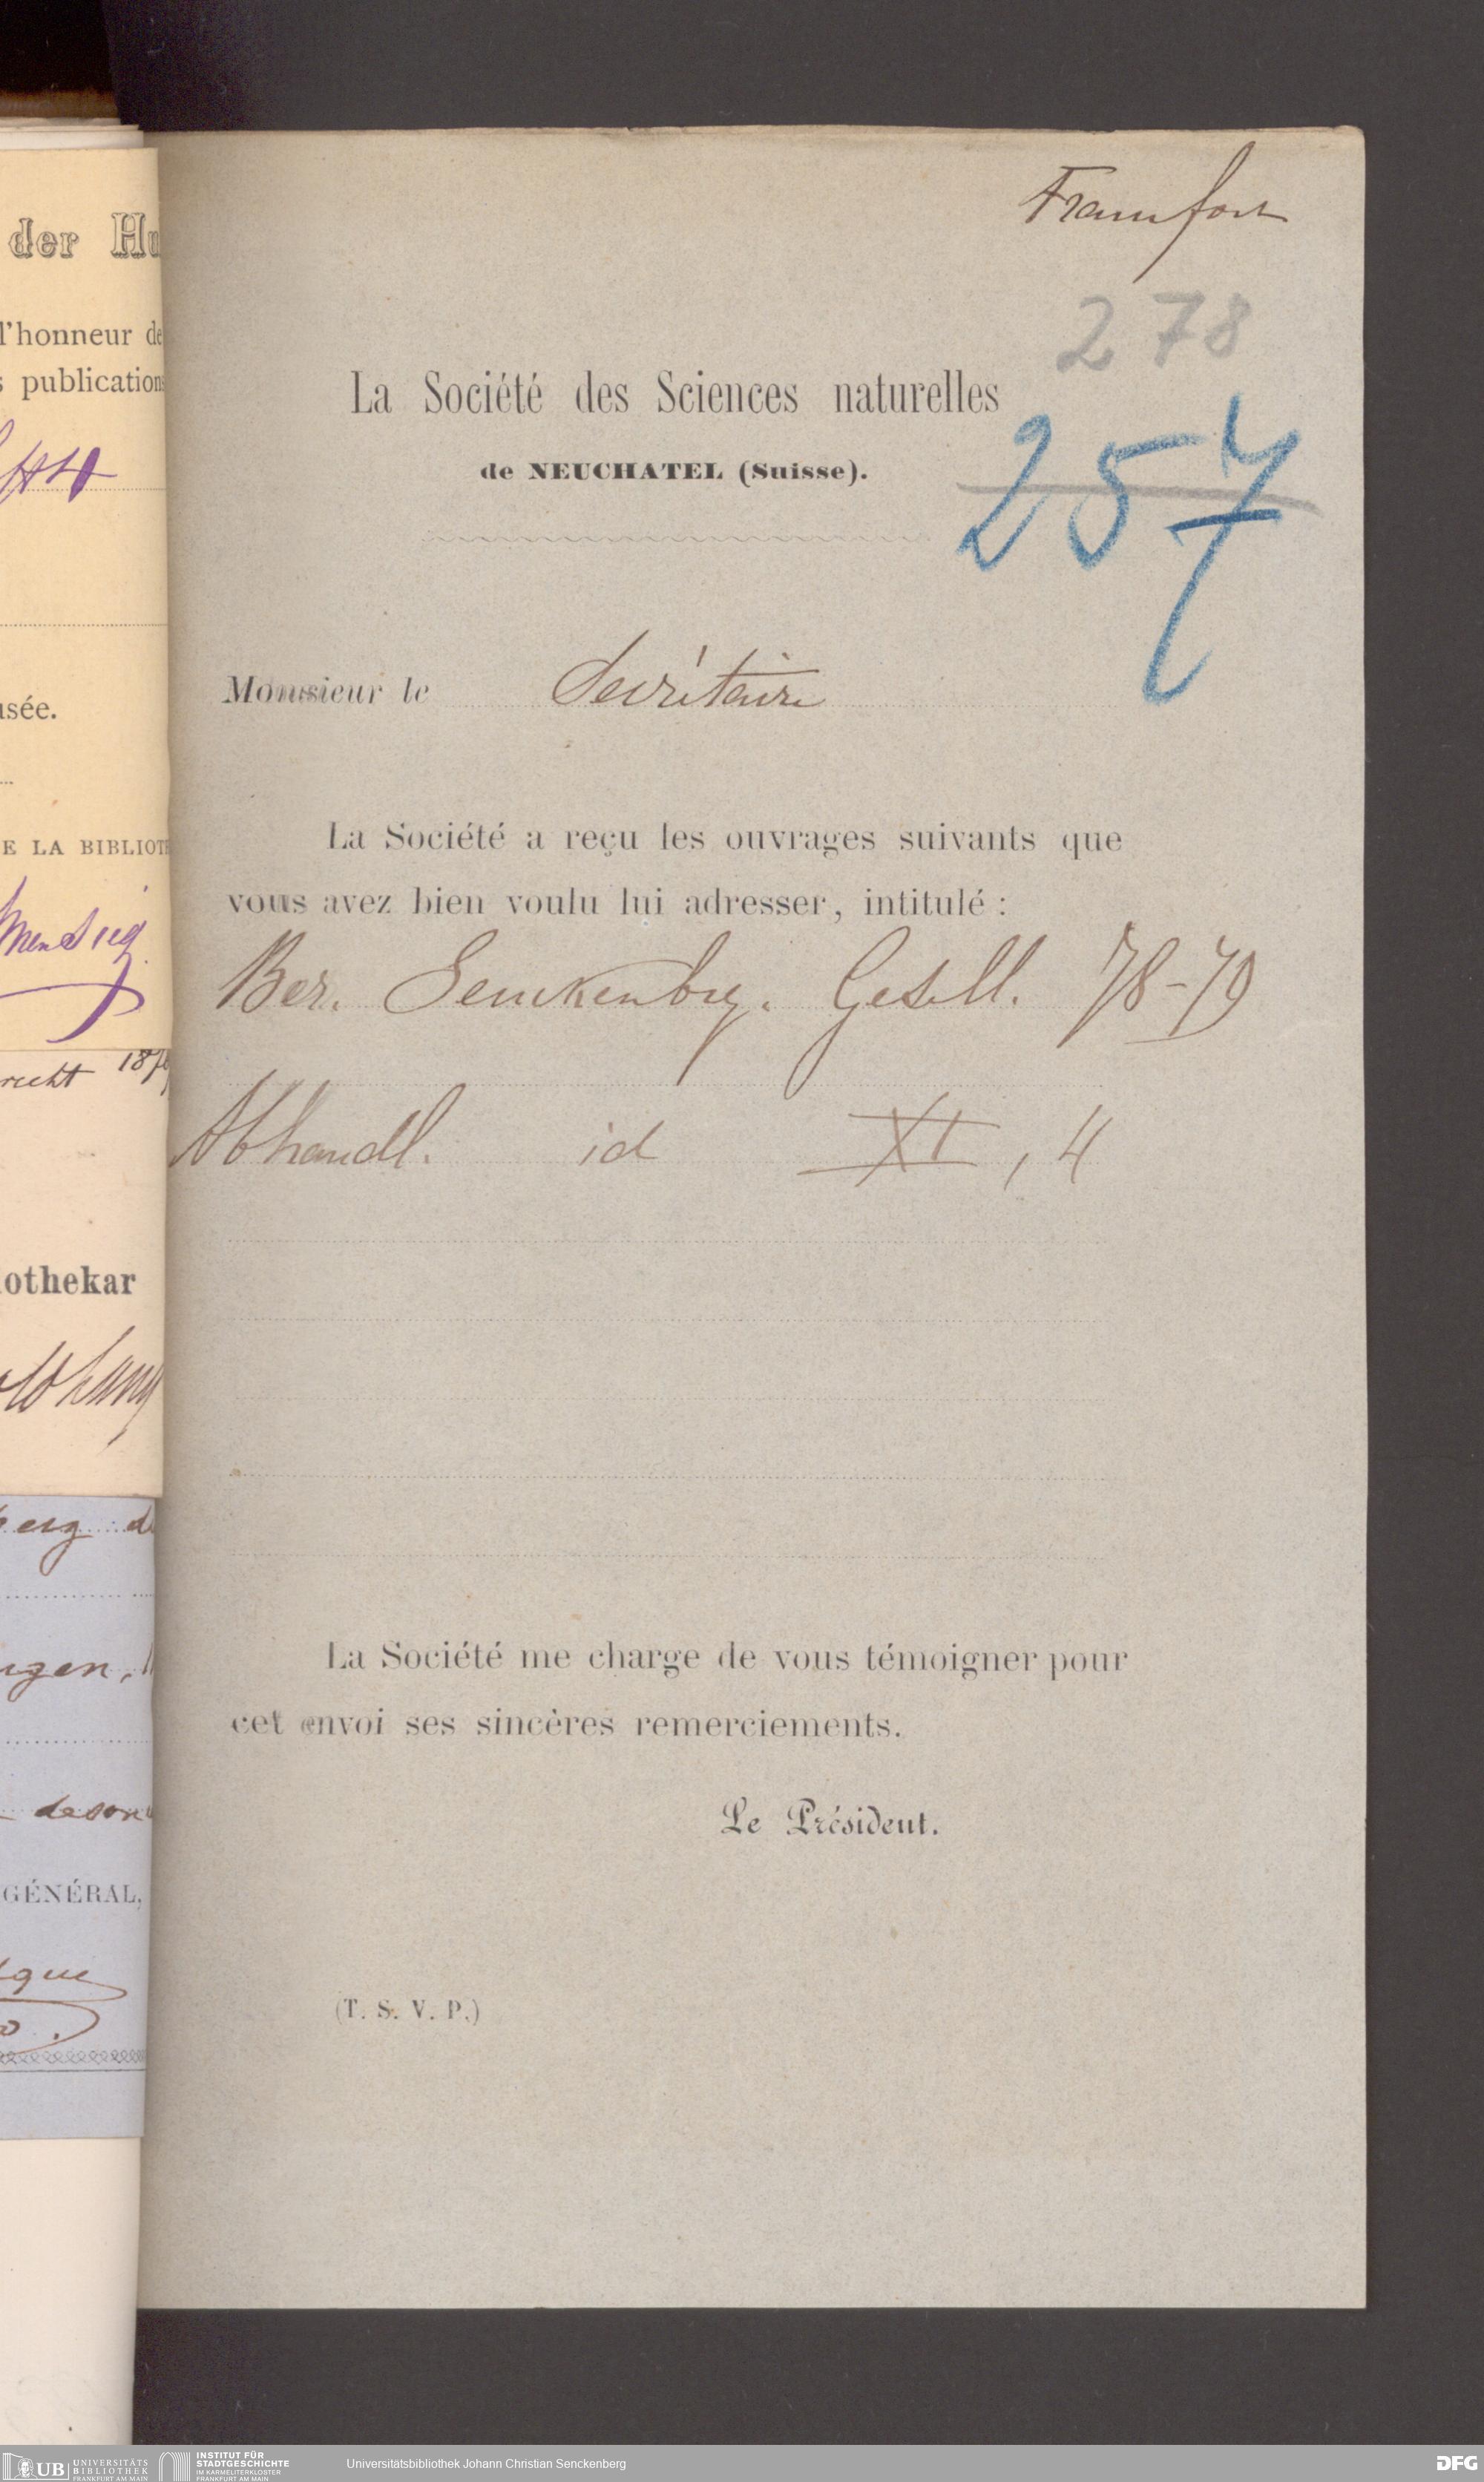 Francfort
278
La Société des Sciences naturelles
257
de NEUCHATEL (Suisse).
Monsieur le Secrétaire
La Société a reçu les ouvrages suivants que
vous avez bien voulu lui adresser, intitulé :
Ber. Senckenbrg. Gesell. 78-79
Abhandl. id XI, 4
La Société me charge de vous témoigner pour
cet envoi ses sincères remerciements.
Le Président.
(T. S. V. P.)
der Hu
l'honneur de
s publication
usée.
E LA BIBLIOTH
recht 187
iothekar
erg d
ngen,
GÉNÉRAL,
UB UNIVERSITÄTS
BIBLIOTHEK
FRANKFURT AM MAIN
INSTITUT FÜR
STADTGESCHICHTE
IM KARMELITERKLOSTER
FRANKFURT AM MAIN
Universitätsbibliothek Johann Christian Senckenberg
DFG